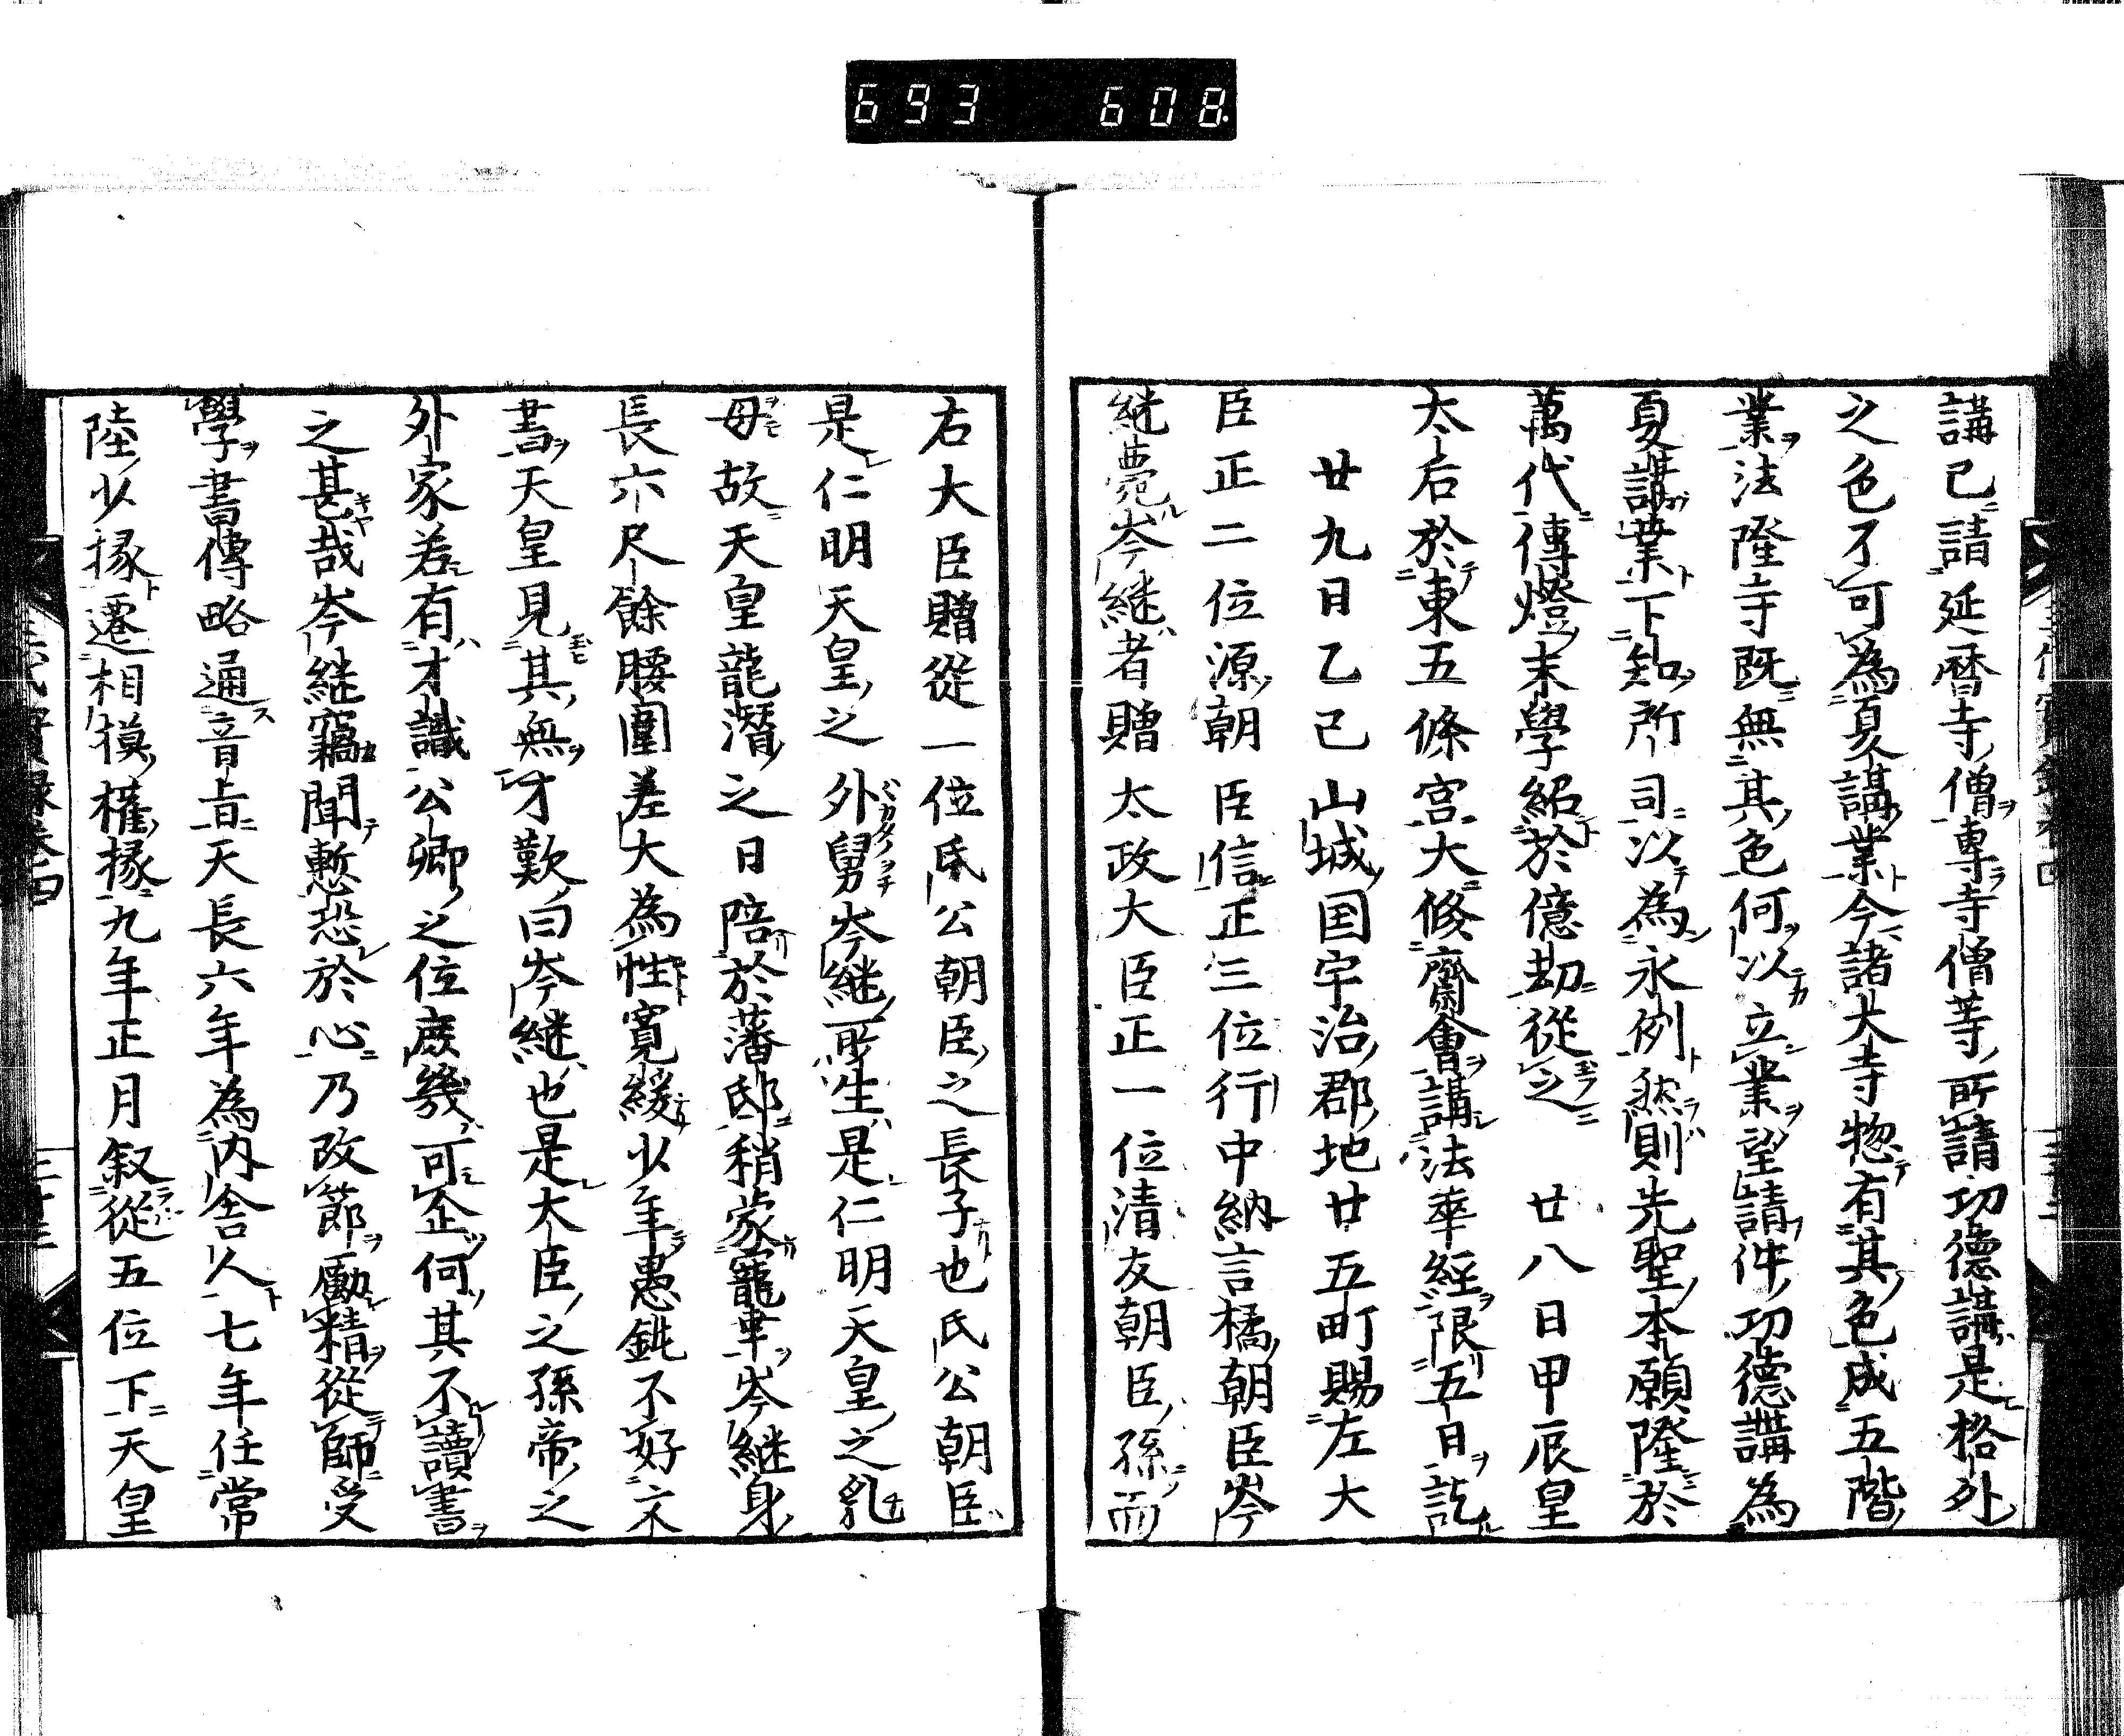 693 608
講已請延暦寺僧專寺僧等所請功德講是格外
之色不可為夏講業今諸大寺惣有其色成五階
業法隆寺既無其色何以立業望請件功德講為
夏講業下知所司以為永例然則先聖本願隆於
萬代傳燈末學紹於億劫從之 廿八日甲辰皇
太后於東五條宮大修齋會講法華經限五日訖
廿九日乙巳山城国宇治郡地廿五町賜左大
臣正二位源朝臣信正三位行中納言橘朝臣岑
継薨岑継者贈太政大臣正一位清友朝臣孫而
右大臣贈從一位氏公朝臣之長子也氏公朝臣
是仁明天皇之外舅岑継所生是仁明天皇之乳
母故天皇龍潛之日陪於藩邸稍蒙寵幸岑継身
長六尺餘腰圍差大為性寬緩少年愚鈍不好文
書天皇見其無才歎曰岑継也是大臣之孫帝之
外家若有才識公卿之位庶幾可企何其不讀書
之甚哉岑継竊聞慙恐於心乃改節勵精從師受
學書傳略通音旨天長六年為内舍人七年任常
陸少掾遷相摸權掾九年正月叙從五位下天皇